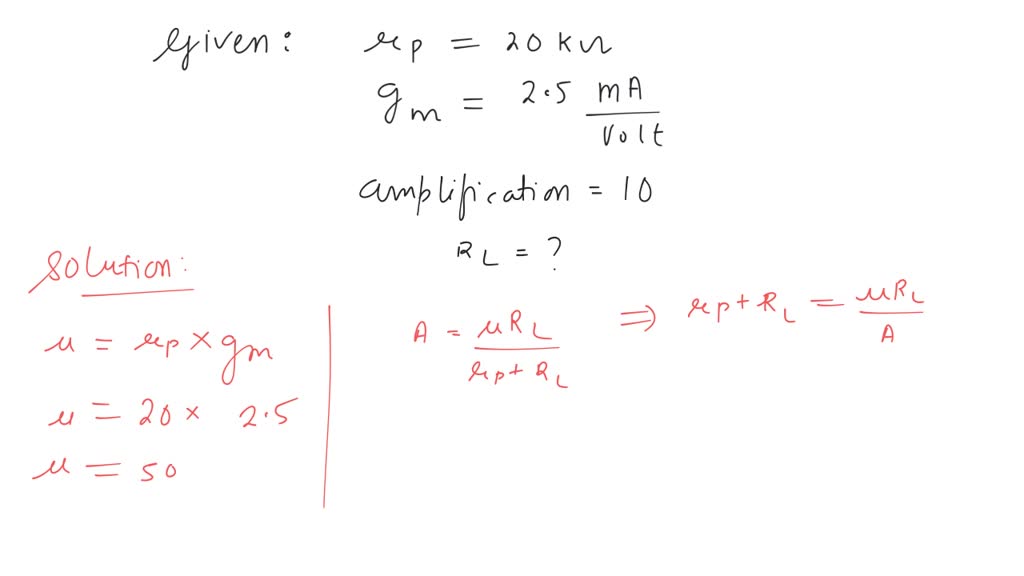 Given: rp = 20 kΩ
gm = 2.5 mA/Volt
amplification = 10
RL = ?
Solution:
μ = rp × gm
μ = 20 × 2.5
μ = 50
A = μRL/rp + RL ⇒ rp + RL = μRL/A